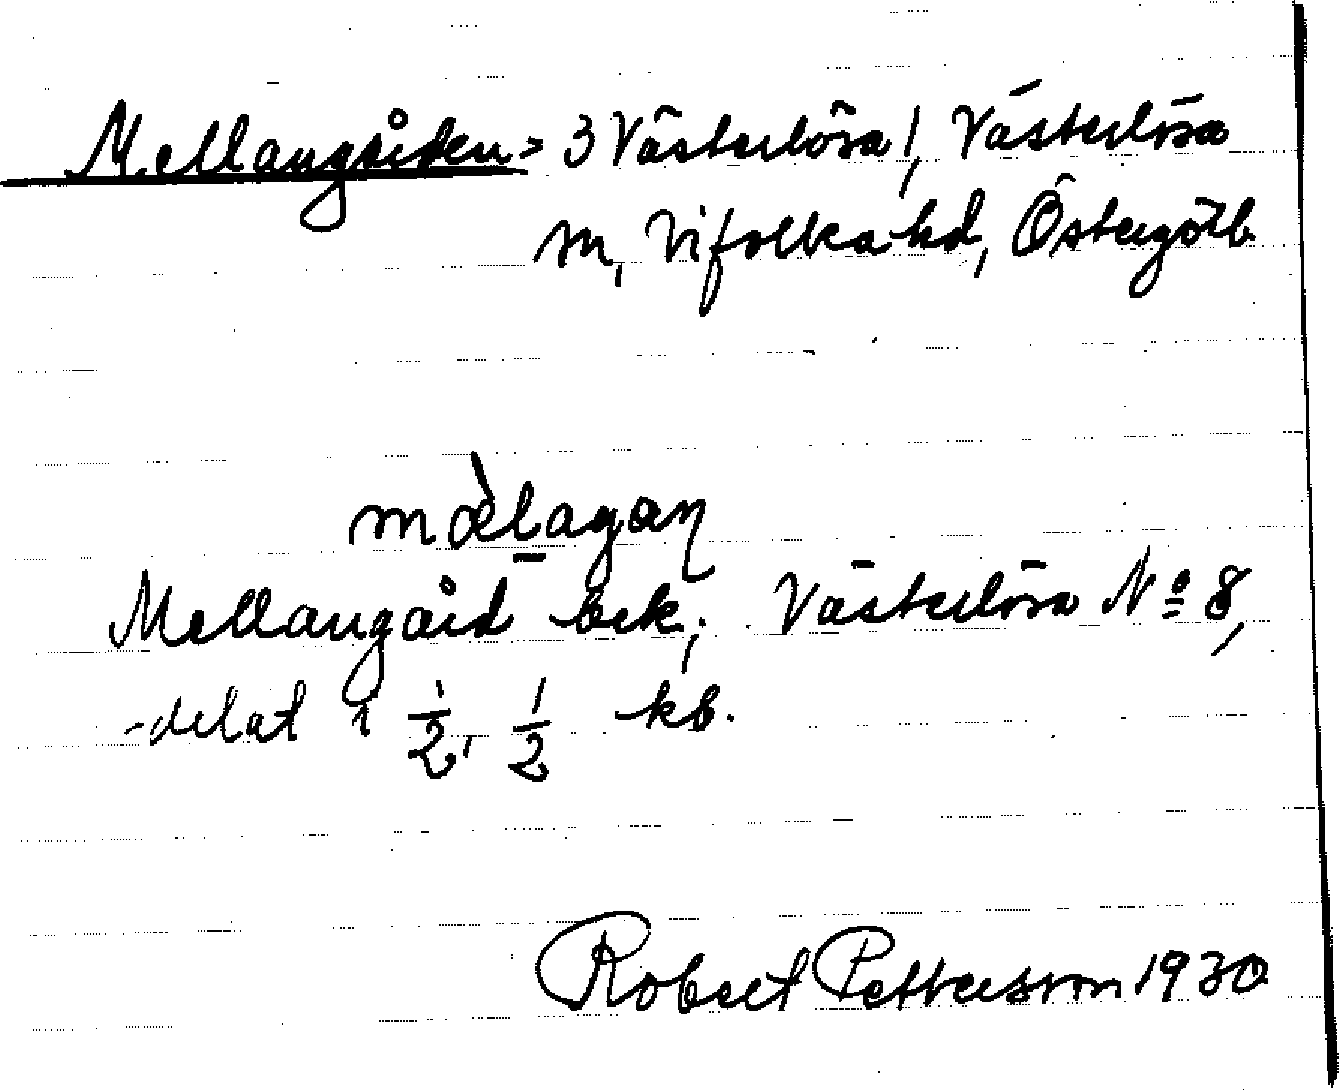 Mellangården = 3 Västerlösa 1, Västerlösa
sn, Vifolka hd, Östergötl.
mæ̀lagaɳ
Mellangård bek; Västerlösa Nº 8,
delat i 1/2, 1/2 kb.
Robert Pettersson 1930